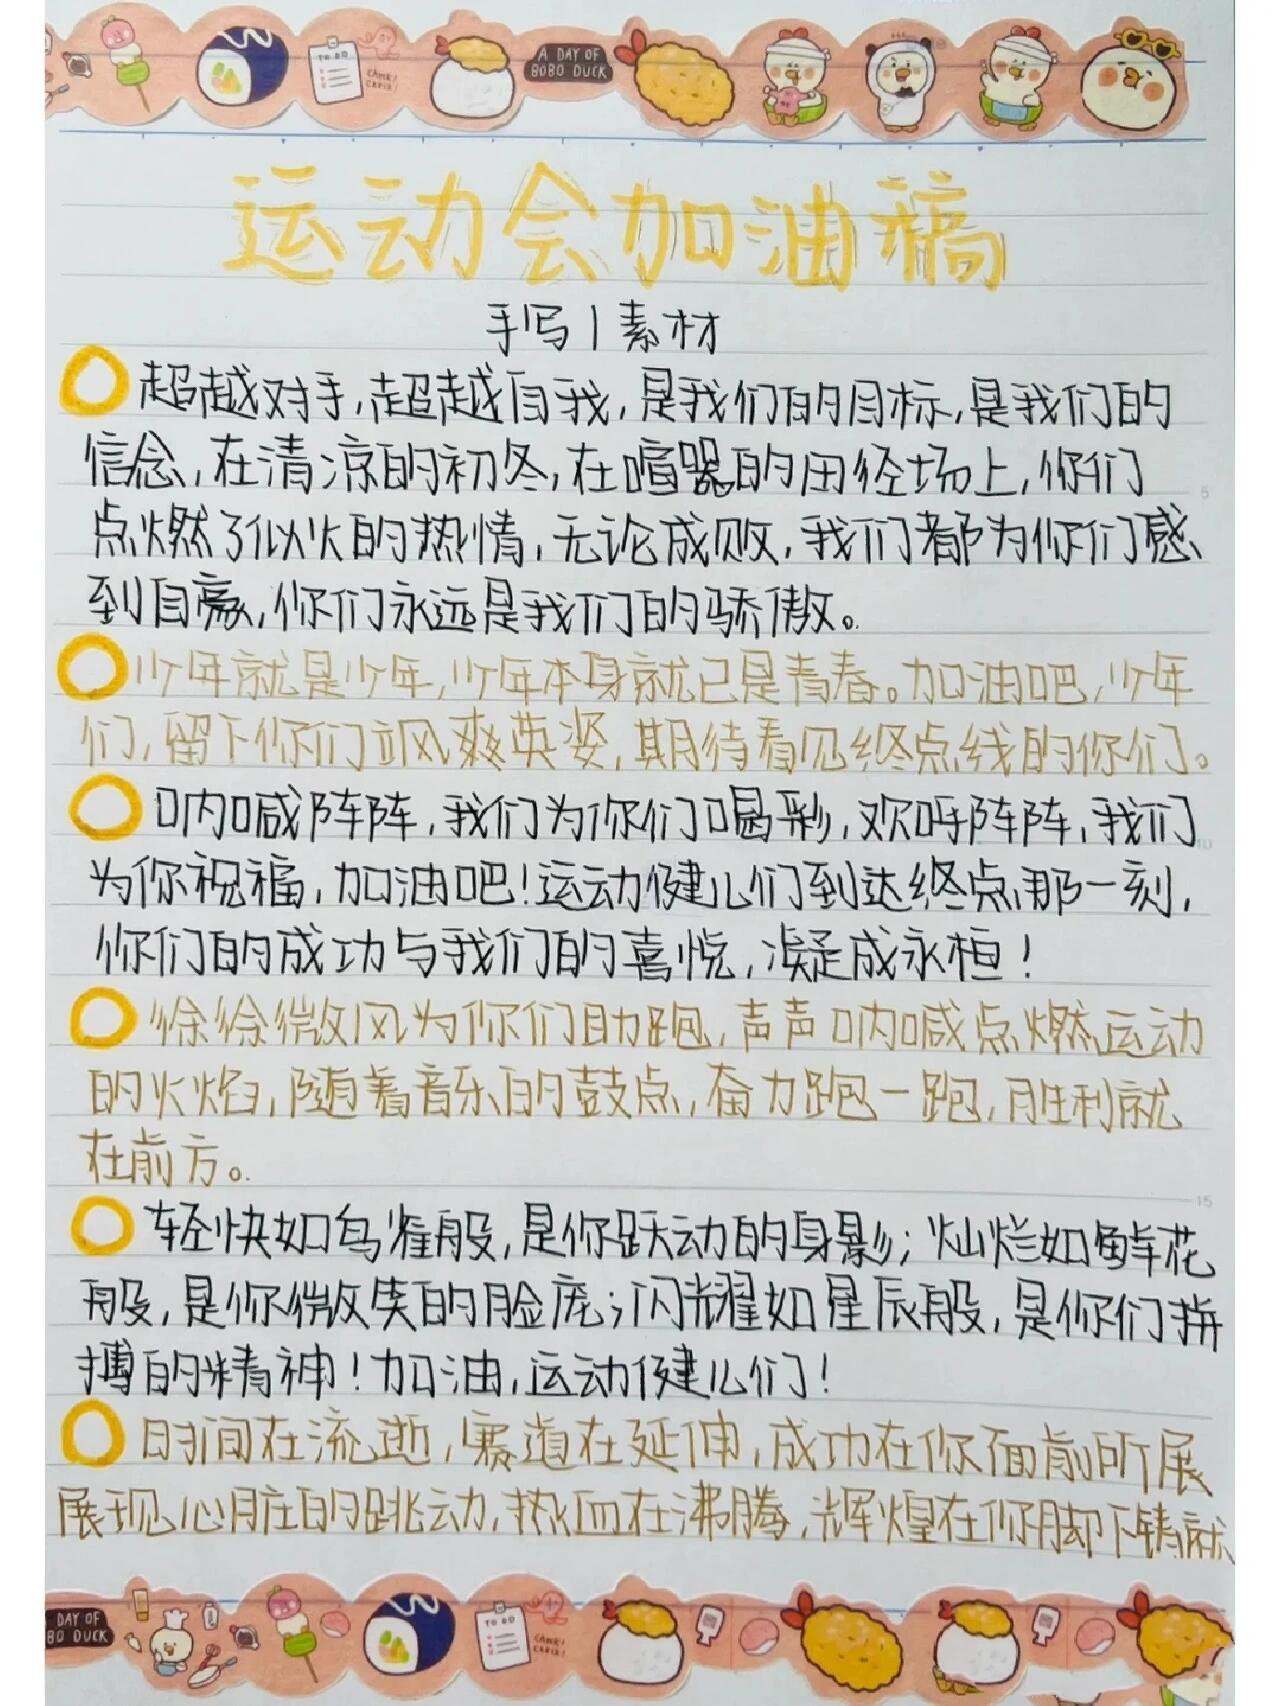 A DAY OF
BOBO DUCK
TO DO
运动会加油稿
手写|素材
超越对手,超越自我,是我们的目标,是我们的
信念,在清凉的初冬,在喧嚣的田径场上,你们
点燃了似火的热情,无论成败,我们都为你们感
到自豪,你们永远是我们的骄傲。
少年就是少年,少年本身就已是青春。加油吧,少年
们,留下你们飒爽英姿,期待看见终点线的你们。
呐喊阵阵,我们为你们喝彩,欢呼阵阵,我们
为你祝福,加油吧!运动健儿们到达终点那一刻,
你们的成功与我们的喜悦,凝成永恒!
徐徐微风为你们助跑,声声呐喊点燃运动
的火焰,随着音乐的鼓点,奋力跑一跑,胜利就
在前方。
轻快如鸟雀般,是你跃动的身影;灿烂如鲜花
般,是你微笑的脸庞;闪耀如星辰般,是你们拼
搏的精神!加油,运动健儿们!
时间在流逝,赛道在延伸,成功在你面前所展
展现心脏的跳动,热血在沸腾,辉煌在你脚下铸就
DAY OF
BO DUCK
TO DO